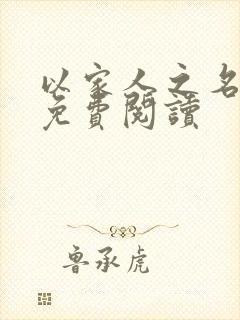 以家人之名
免費閱讀
魯承虎